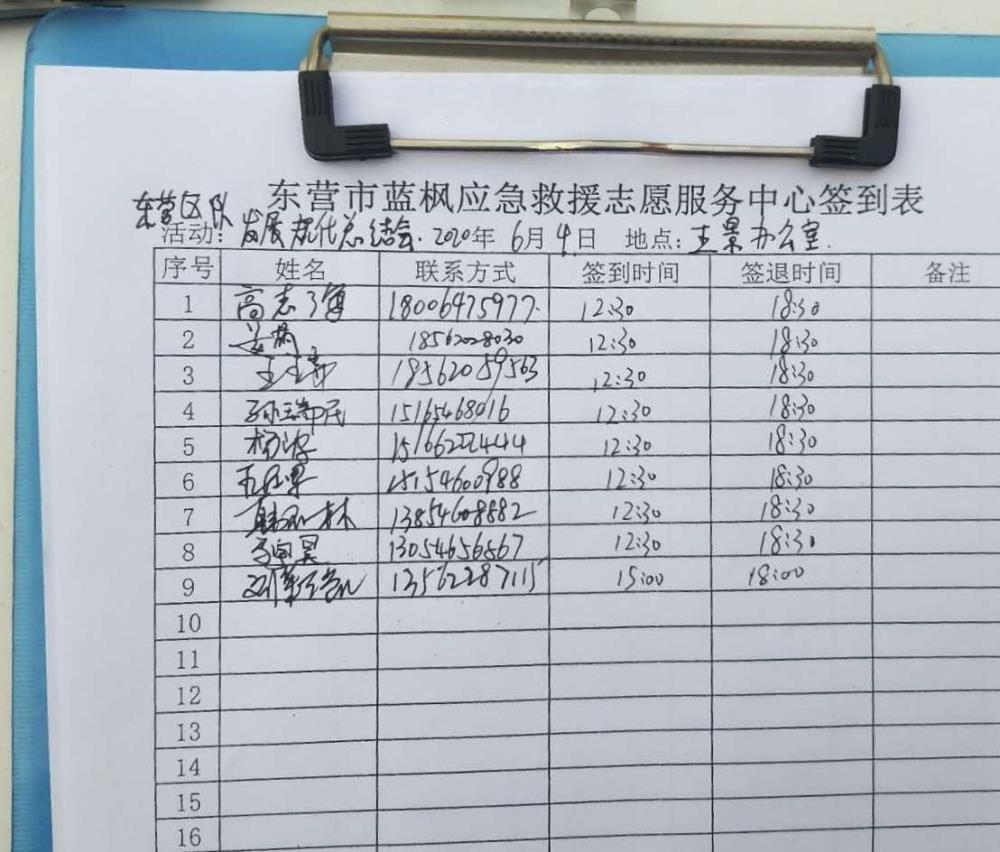 东营市蓝枫应急救援志愿服务中心签到表
东营区队
活动: 发展规化总结会. 2020年 6月 4日 地点: 王景办公室.
序号 姓名 联系方式 签到时间 签退时间 备注
1 高志海 18006475977. 12:30 18:30
2 18562028030 12:30 18:30
3 18562059563 12:30 18:30
4 孙瑞民 15165468016 12:30 18:30
5 15166222444 12:30 18:30
6 15154600988 12:30 18:30
7 林 13854608882 12:30 18:30
8 昊 13054656567 12:30 18:30
9 13562287115 15:00 18:00
10
11
12
13
14
15
16